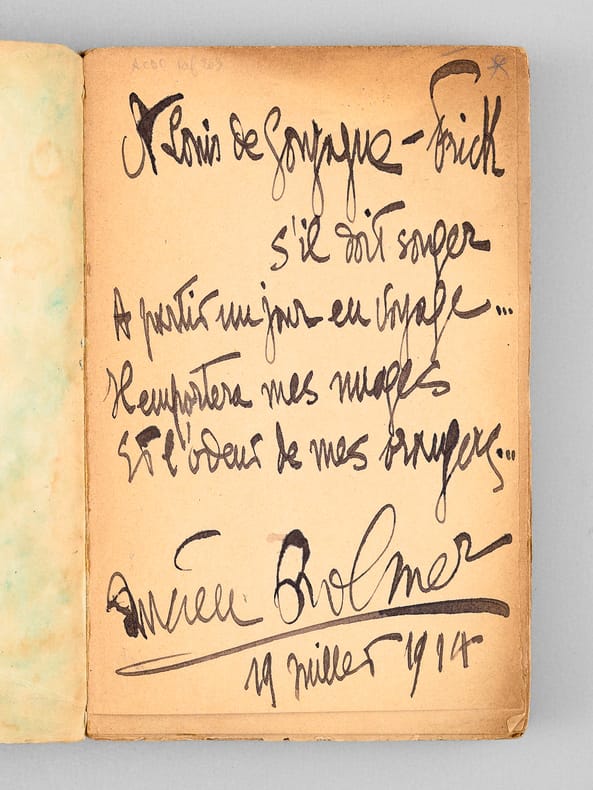 A Louis de Gonzague-Frick
s'il doit songer
A partir un jour en voyage...
Il emportera mes nuages
Et l'odeur de mes orangers...
Lucien Rolmer
19 juillet 1914